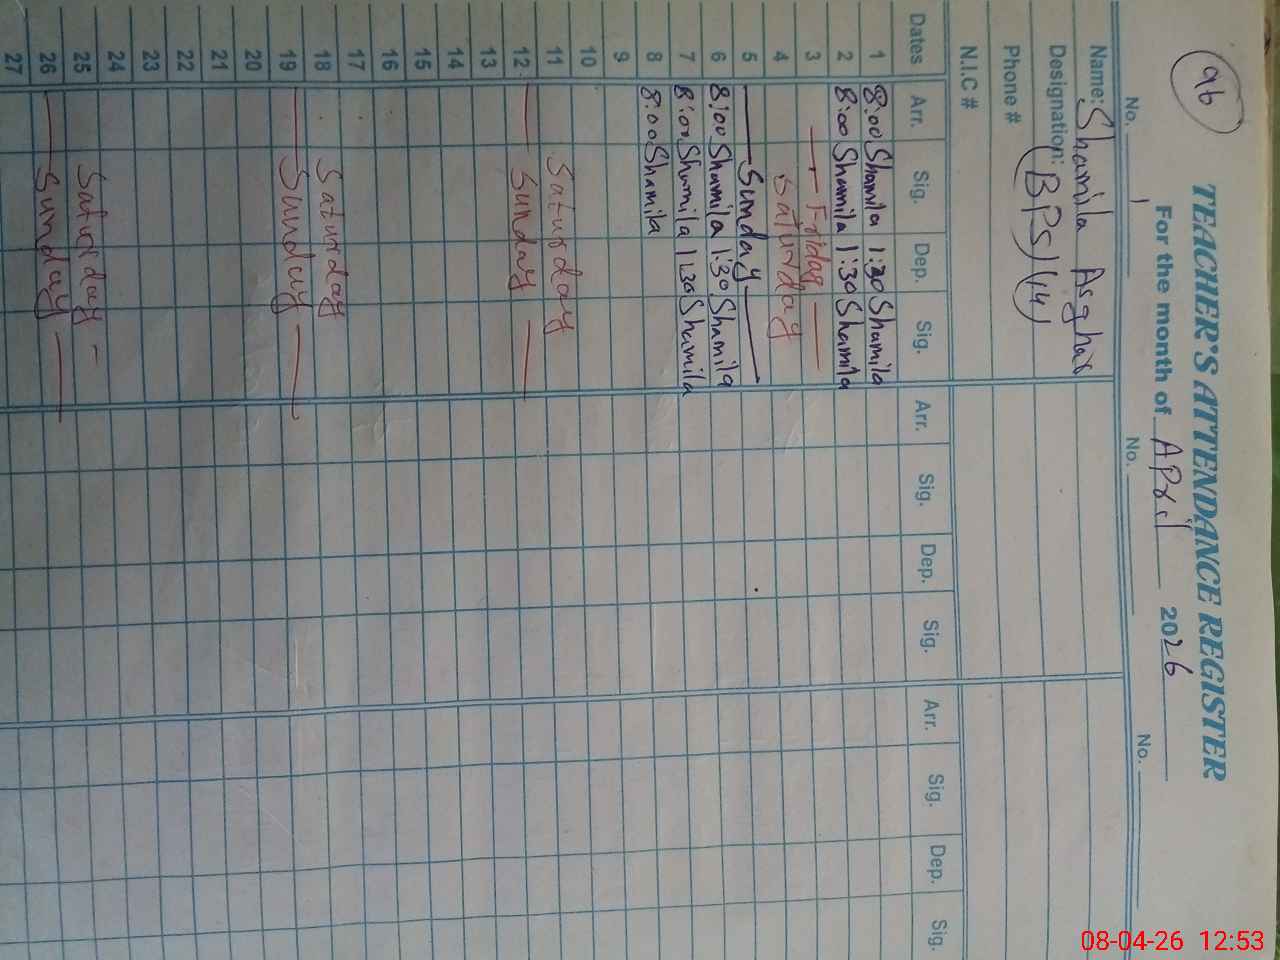 96
TEACHER'S ATTENDANCE REGISTER
For the month of April 2026
No. 1 No. No.
Name: Shamila Asghar
Designation: (BPS)(14)
Phone #
N.I.C #
Dates Arr. Sig. Dep. Sig. Arr. Sig. Dep. Sig. Arr. Sig. Dep. Sig.
1 8:00 Shamila 1:30 Shamila
2 8:00 Shamila 1:30 Shamila
3 Friday
4 Saturday
5 Sunday
6 8:00 Shamila 1:30 Shamila
7 8:00 Shamila 1:30 Shamila
8 8:00 Shamila
9
10
11 Saturday
12 Sunday
13
14
15
16
17
18 Saturday
19 Sunday
20
21
22
23
24
25 Saturday
26 Sunday
27
08-04-26 12:53